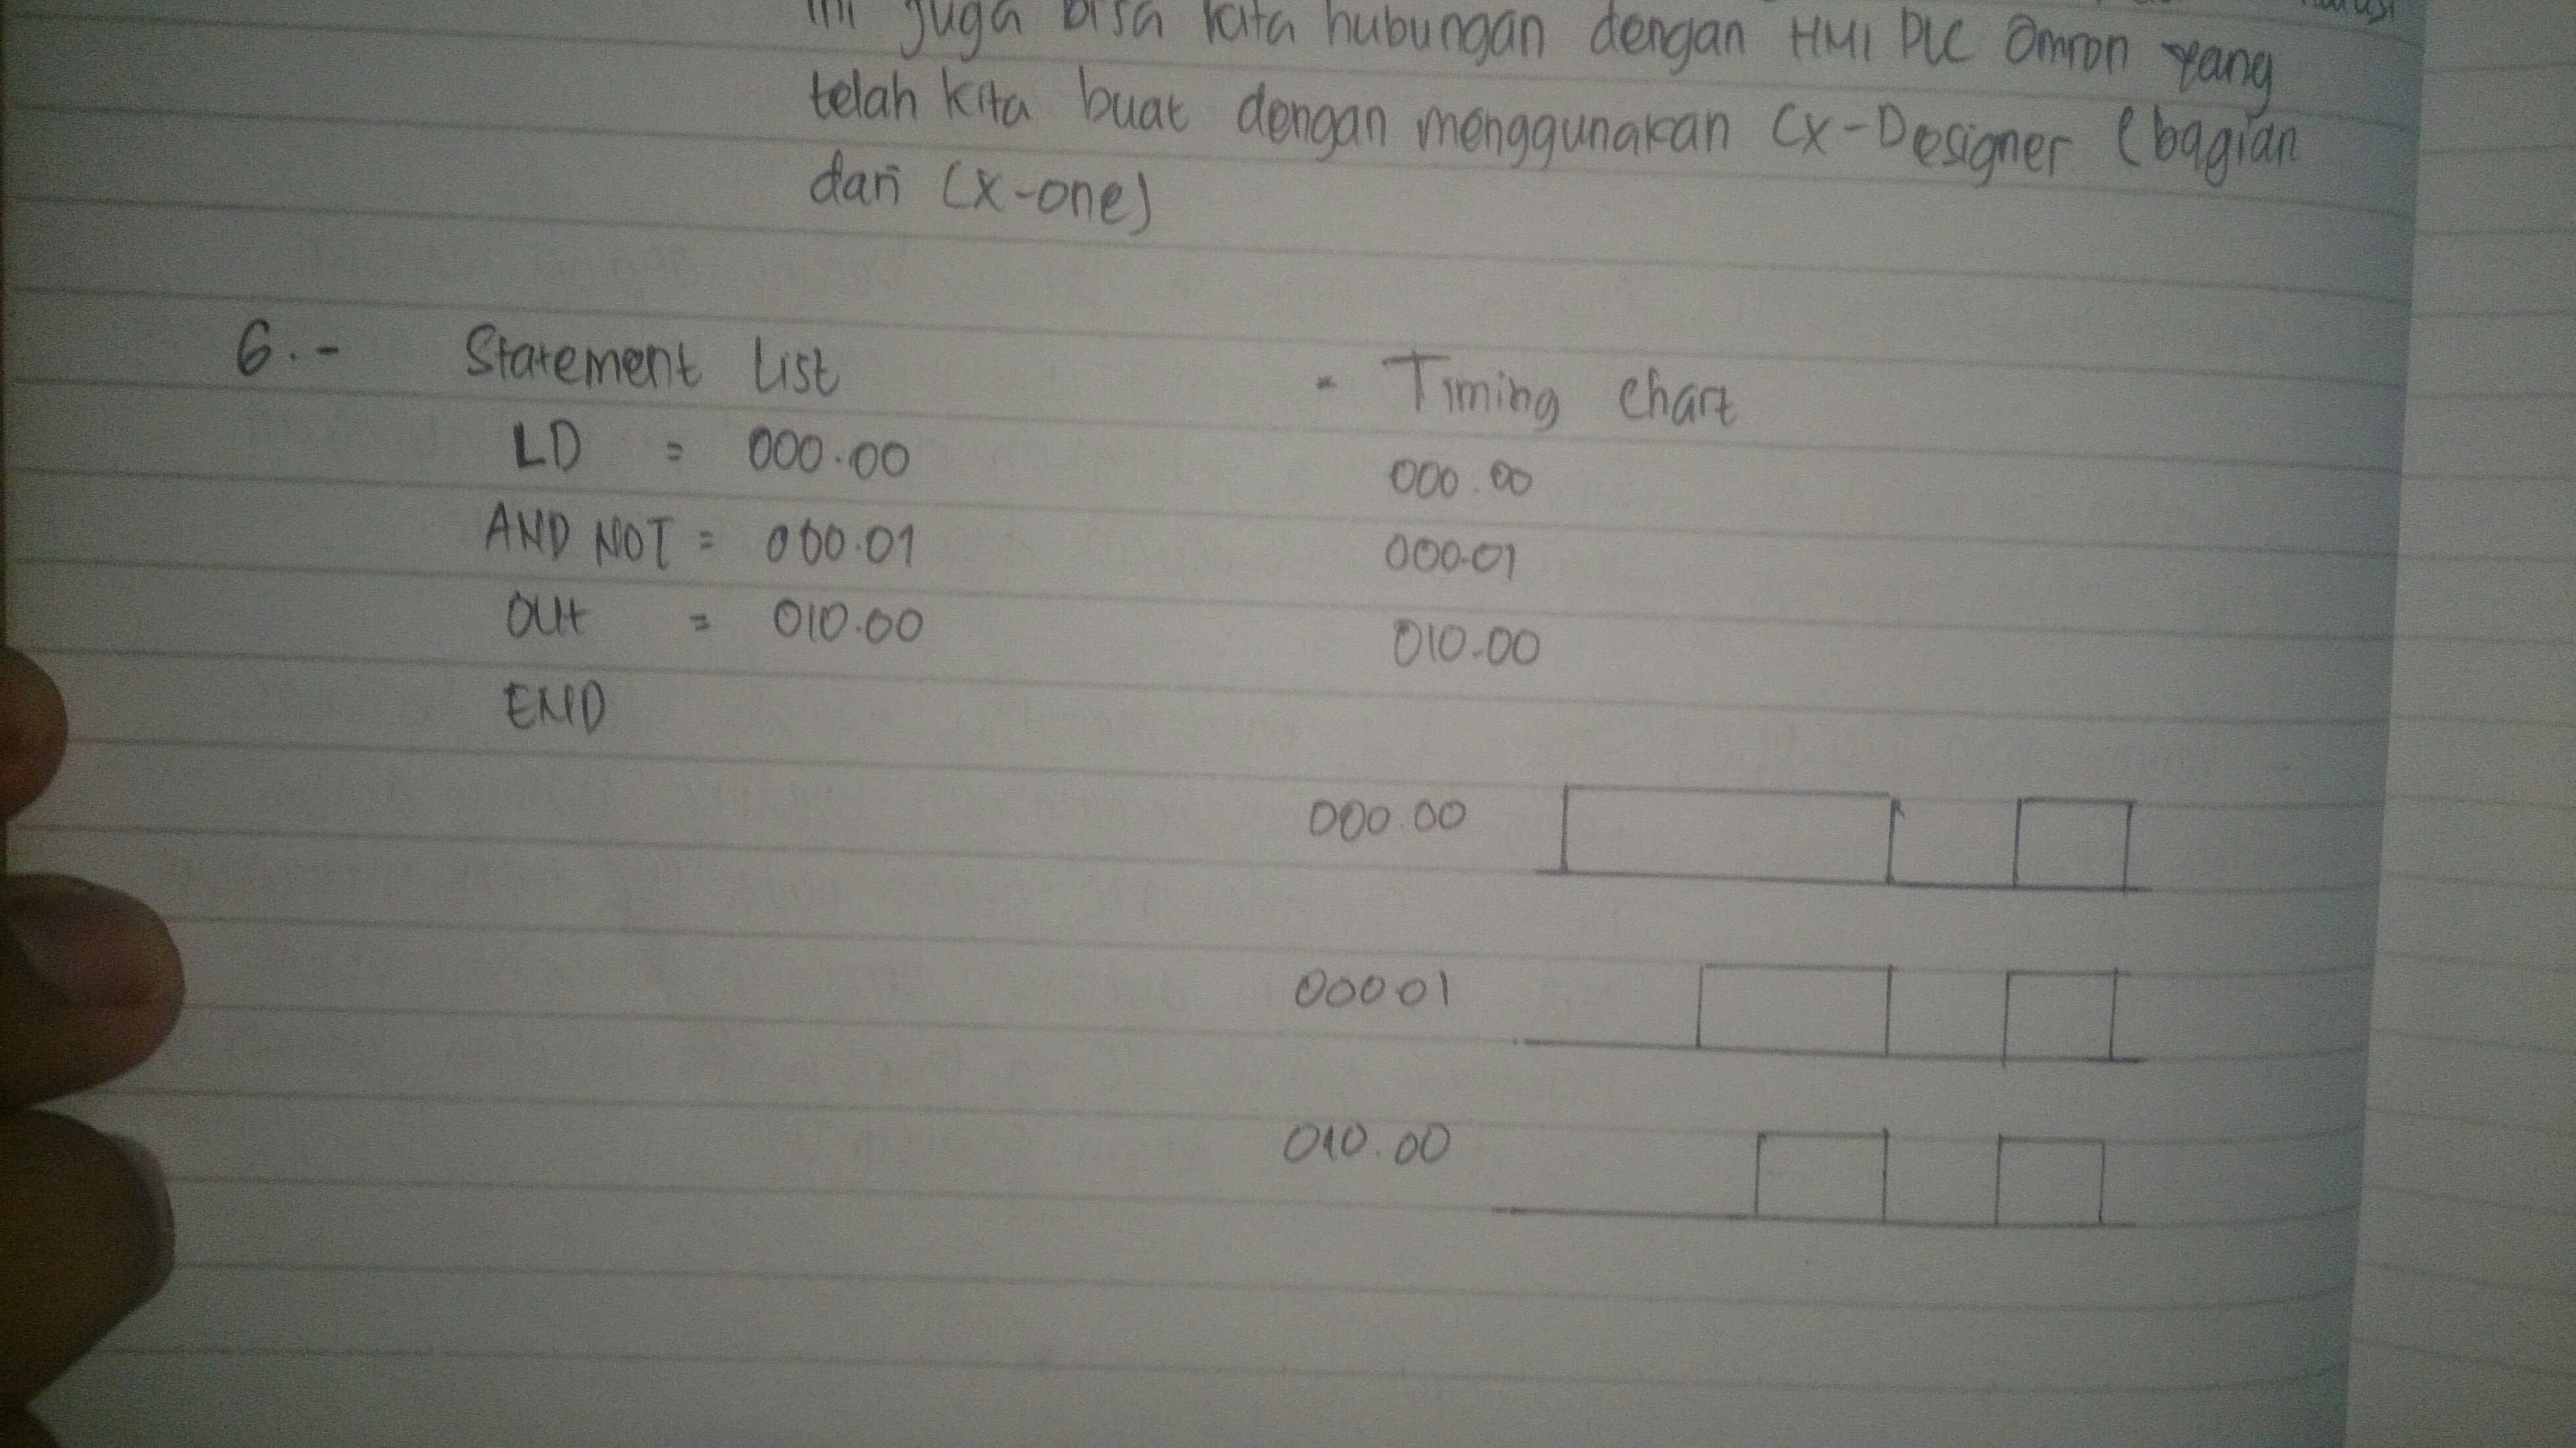 ini juga bisa kita hubungan dengan HMI PLC Omron yang
telah kita buat dengan menggunakan CX-Designer (bagian
dari CX-one)
6.- Statement List
LD = 000.00
AND NOT = 000.01
OUt = 010.00
END
- Timing chart
000.00
000.01
010.00
000.00
000 01
010.00